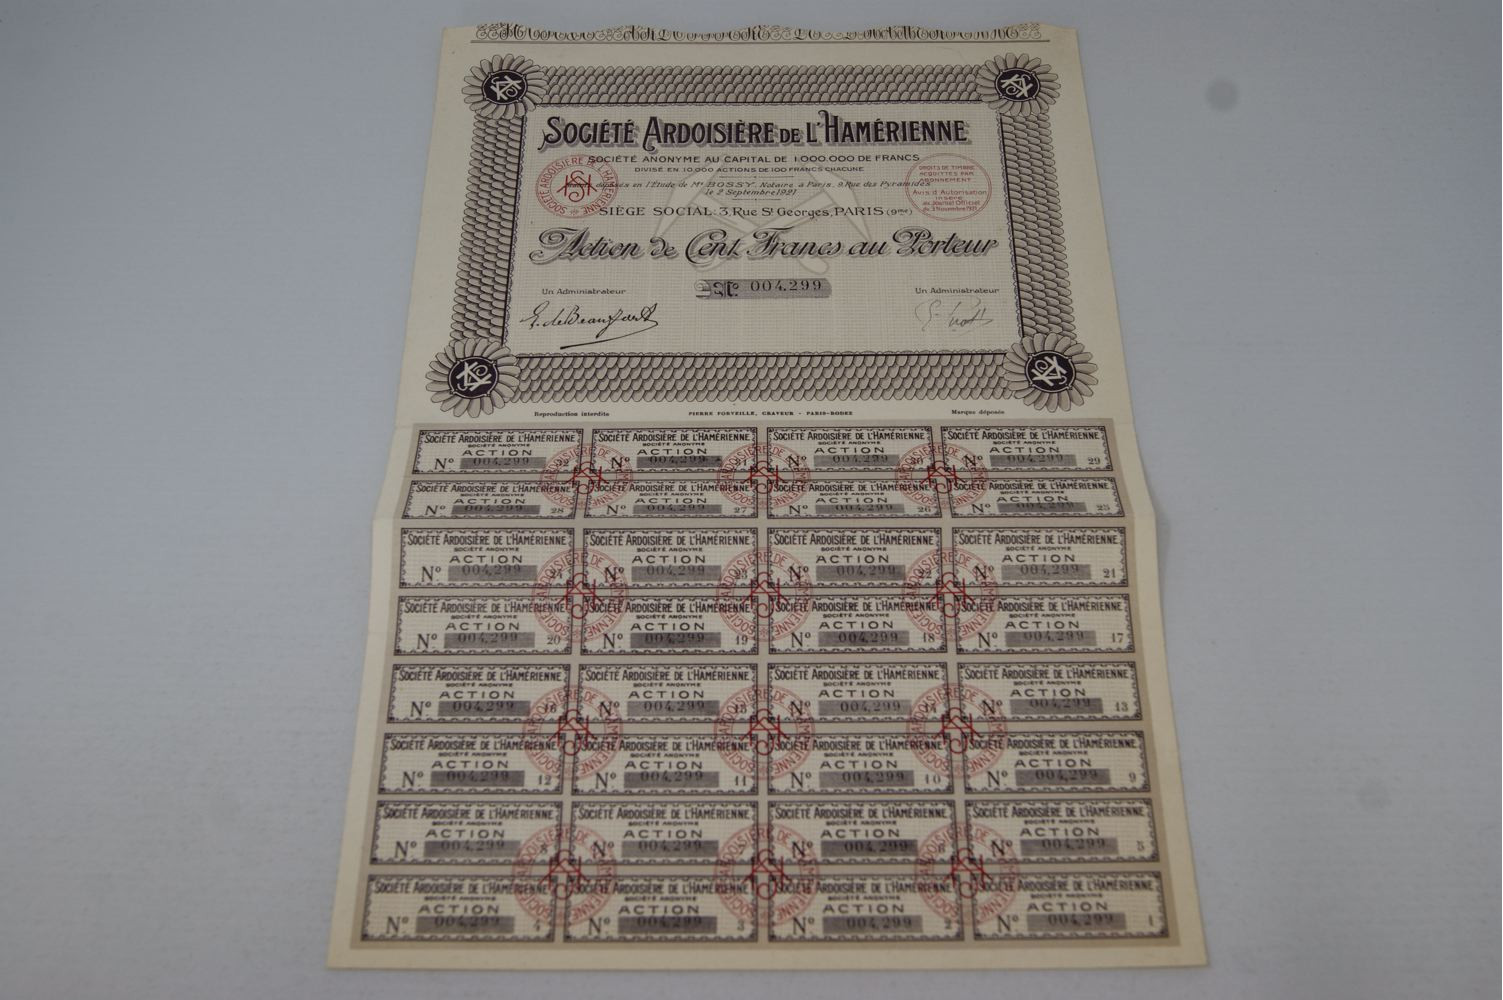 SOCIÉTÉ ARDOISIÈRE DE L'HAMÉRIENNE
SOCIÉTÉ ANONYME AU CAPITAL DE 1.000.000 DE FRANCS
DIVISÉ EN 10.000 ACTIONS DE 100 FRANCS CHACUNE
déposés en l'Étude de Me BOSSY, Notaire à Paris, 9, Rue des Pyramides
le 2 Septembre 1921
SOCIÉTÉ ARDOISIÈRE DE L'HAMÉRIENNE
DROITS DE TIMBRE
ACQUITTÉS PAR
ABONNEMENT
Avis d'Autorisation
inséré
au Journal Officiel
du 3 Novembre 1921
SIÈGE SOCIAL: 3, Rue St Georges, PARIS (9me)
Action de Cent Francs au Porteur
Un Administrateur
No 004,299
Un Administrateur
Reproduction interdite
PIERRE FORVEILLE, GRAVEUR - PARIS-RODEZ
Marque déposée
SOCIÉTÉ ARDOISIÈRE DE L'HAMÉRIENNE SOCIÉTÉ ARDOISIÈRE DE L'HAMÉRIENNE SOCIÉTÉ ARDOISIÈRE DE L'HAMÉRIENNE SOCIÉTÉ ARDOISIÈRE DE L'HAMÉRIENNE
SOCIÉTÉ ANONYME SOCIÉTÉ ANONYME SOCIÉTÉ ANONYME SOCIÉTÉ ANONYME
ACTION ACTION ACTION ACTION
No 004,299 32 No 004,299 31 No 004,299 No 004,299 29
SOCIÉTÉ ARDOISIÈRE DE L'HAMÉRIENNE SOCIÉTÉ ARDOISIÈRE DE L'HAMÉRIENNE SOCIÉTÉ ARDOISIÈRE DE L'HAMÉRIENNE SOCIÉTÉ ARDOISIÈRE DE L'HAMÉRIENNE
SOCIÉTÉ ANONYME SOCIÉTÉ ANONYME SOCIÉTÉ ANONYME SOCIÉTÉ ANONYME
ACTION ACTION ACTION ACTION
No 004,299 28 No 004,299 27 No 004,299 26 No 004,299 25
SOCIÉTÉ ARDOISIÈRE DE L'HAMÉRIENNE SOCIÉTÉ ARDOISIÈRE DE L'HAMÉRIENNE SOCIÉTÉ ARDOISIÈRE DE L'HAMÉRIENNE SOCIÉTÉ ARDOISIÈRE DE L'HAMÉRIENNE
SOCIÉTÉ ANONYME SOCIÉTÉ ANONYME SOCIÉTÉ ANONYME SOCIÉTÉ ANONYME
ACTION ACTION ACTION ACTION
No 004,299 24 No 004,299 23 No 004,299 22 No 004,299 21
SOCIÉTÉ ARDOISIÈRE DE L'HAMÉRIENNE SOCIÉTÉ ARDOISIÈRE DE L'HAMÉRIENNE SOCIÉTÉ ARDOISIÈRE DE L'HAMÉRIENNE SOCIÉTÉ ARDOISIÈRE DE L'HAMÉRIENNE
SOCIÉTÉ ANONYME SOCIÉTÉ ANONYME SOCIÉTÉ ANONYME SOCIÉTÉ ANONYME
ACTION ACTION ACTION ACTION
No 004,299 20 No 004,299 19 No 004,299 18 No 004,299 17
SOCIÉTÉ ARDOISIÈRE DE L'HAMÉRIENNE SOCIÉTÉ ARDOISIÈRE DE L'HAMÉRIENNE SOCIÉTÉ ARDOISIÈRE DE L'HAMÉRIENNE SOCIÉTÉ ARDOISIÈRE DE L'HAMÉRIENNE
SOCIÉTÉ ANONYME SOCIÉTÉ ANONYME SOCIÉTÉ ANONYME SOCIÉTÉ ANONYME
ACTION ACTION ACTION ACTION
No 004,299 16 No 004,299 15 No 004,299 14 No 004,299 13
SOCIÉTÉ ARDOISIÈRE DE L'HAMÉRIENNE SOCIÉTÉ ARDOISIÈRE DE L'HAMÉRIENNE SOCIÉTÉ ARDOISIÈRE DE L'HAMÉRIENNE SOCIÉTÉ ARDOISIÈRE DE L'HAMÉRIENNE
SOCIÉTÉ ANONYME SOCIÉTÉ ANONYME SOCIÉTÉ ANONYME SOCIÉTÉ ANONYME
ACTION ACTION ACTION ACTION
No 004,299 12 No 004,299 11 No 004,299 10 No 004,299 9
SOCIÉTÉ ARDOISIÈRE DE L'HAMÉRIENNE SOCIÉTÉ ARDOISIÈRE DE L'HAMÉRIENNE SOCIÉTÉ ARDOISIÈRE DE L'HAMÉRIENNE SOCIÉTÉ ARDOISIÈRE DE L'HAMÉRIENNE
SOCIÉTÉ ANONYME SOCIÉTÉ ANONYME SOCIÉTÉ ANONYME SOCIÉTÉ ANONYME
ACTION ACTION ACTION ACTION
No 004,299 8 No 004,299 No 004,299 6 No 004,299 5
SOCIÉTÉ ARDOISIÈRE DE L'HAMÉRIENNE SOCIÉTÉ ARDOISIÈRE DE L'HAMÉRIENNE SOCIÉTÉ ARDOISIÈRE DE L'HAMÉRIENNE SOCIÉTÉ ARDOISIÈRE DE L'HAMÉRIENNE
SOCIÉTÉ ANONYME SOCIÉTÉ ANONYME SOCIÉTÉ ANONYME SOCIÉTÉ ANONYME
ACTION ACTION ACTION ACTION
No 004,299 4 No 004,299 3 No 004,299 2 No 004,299 1